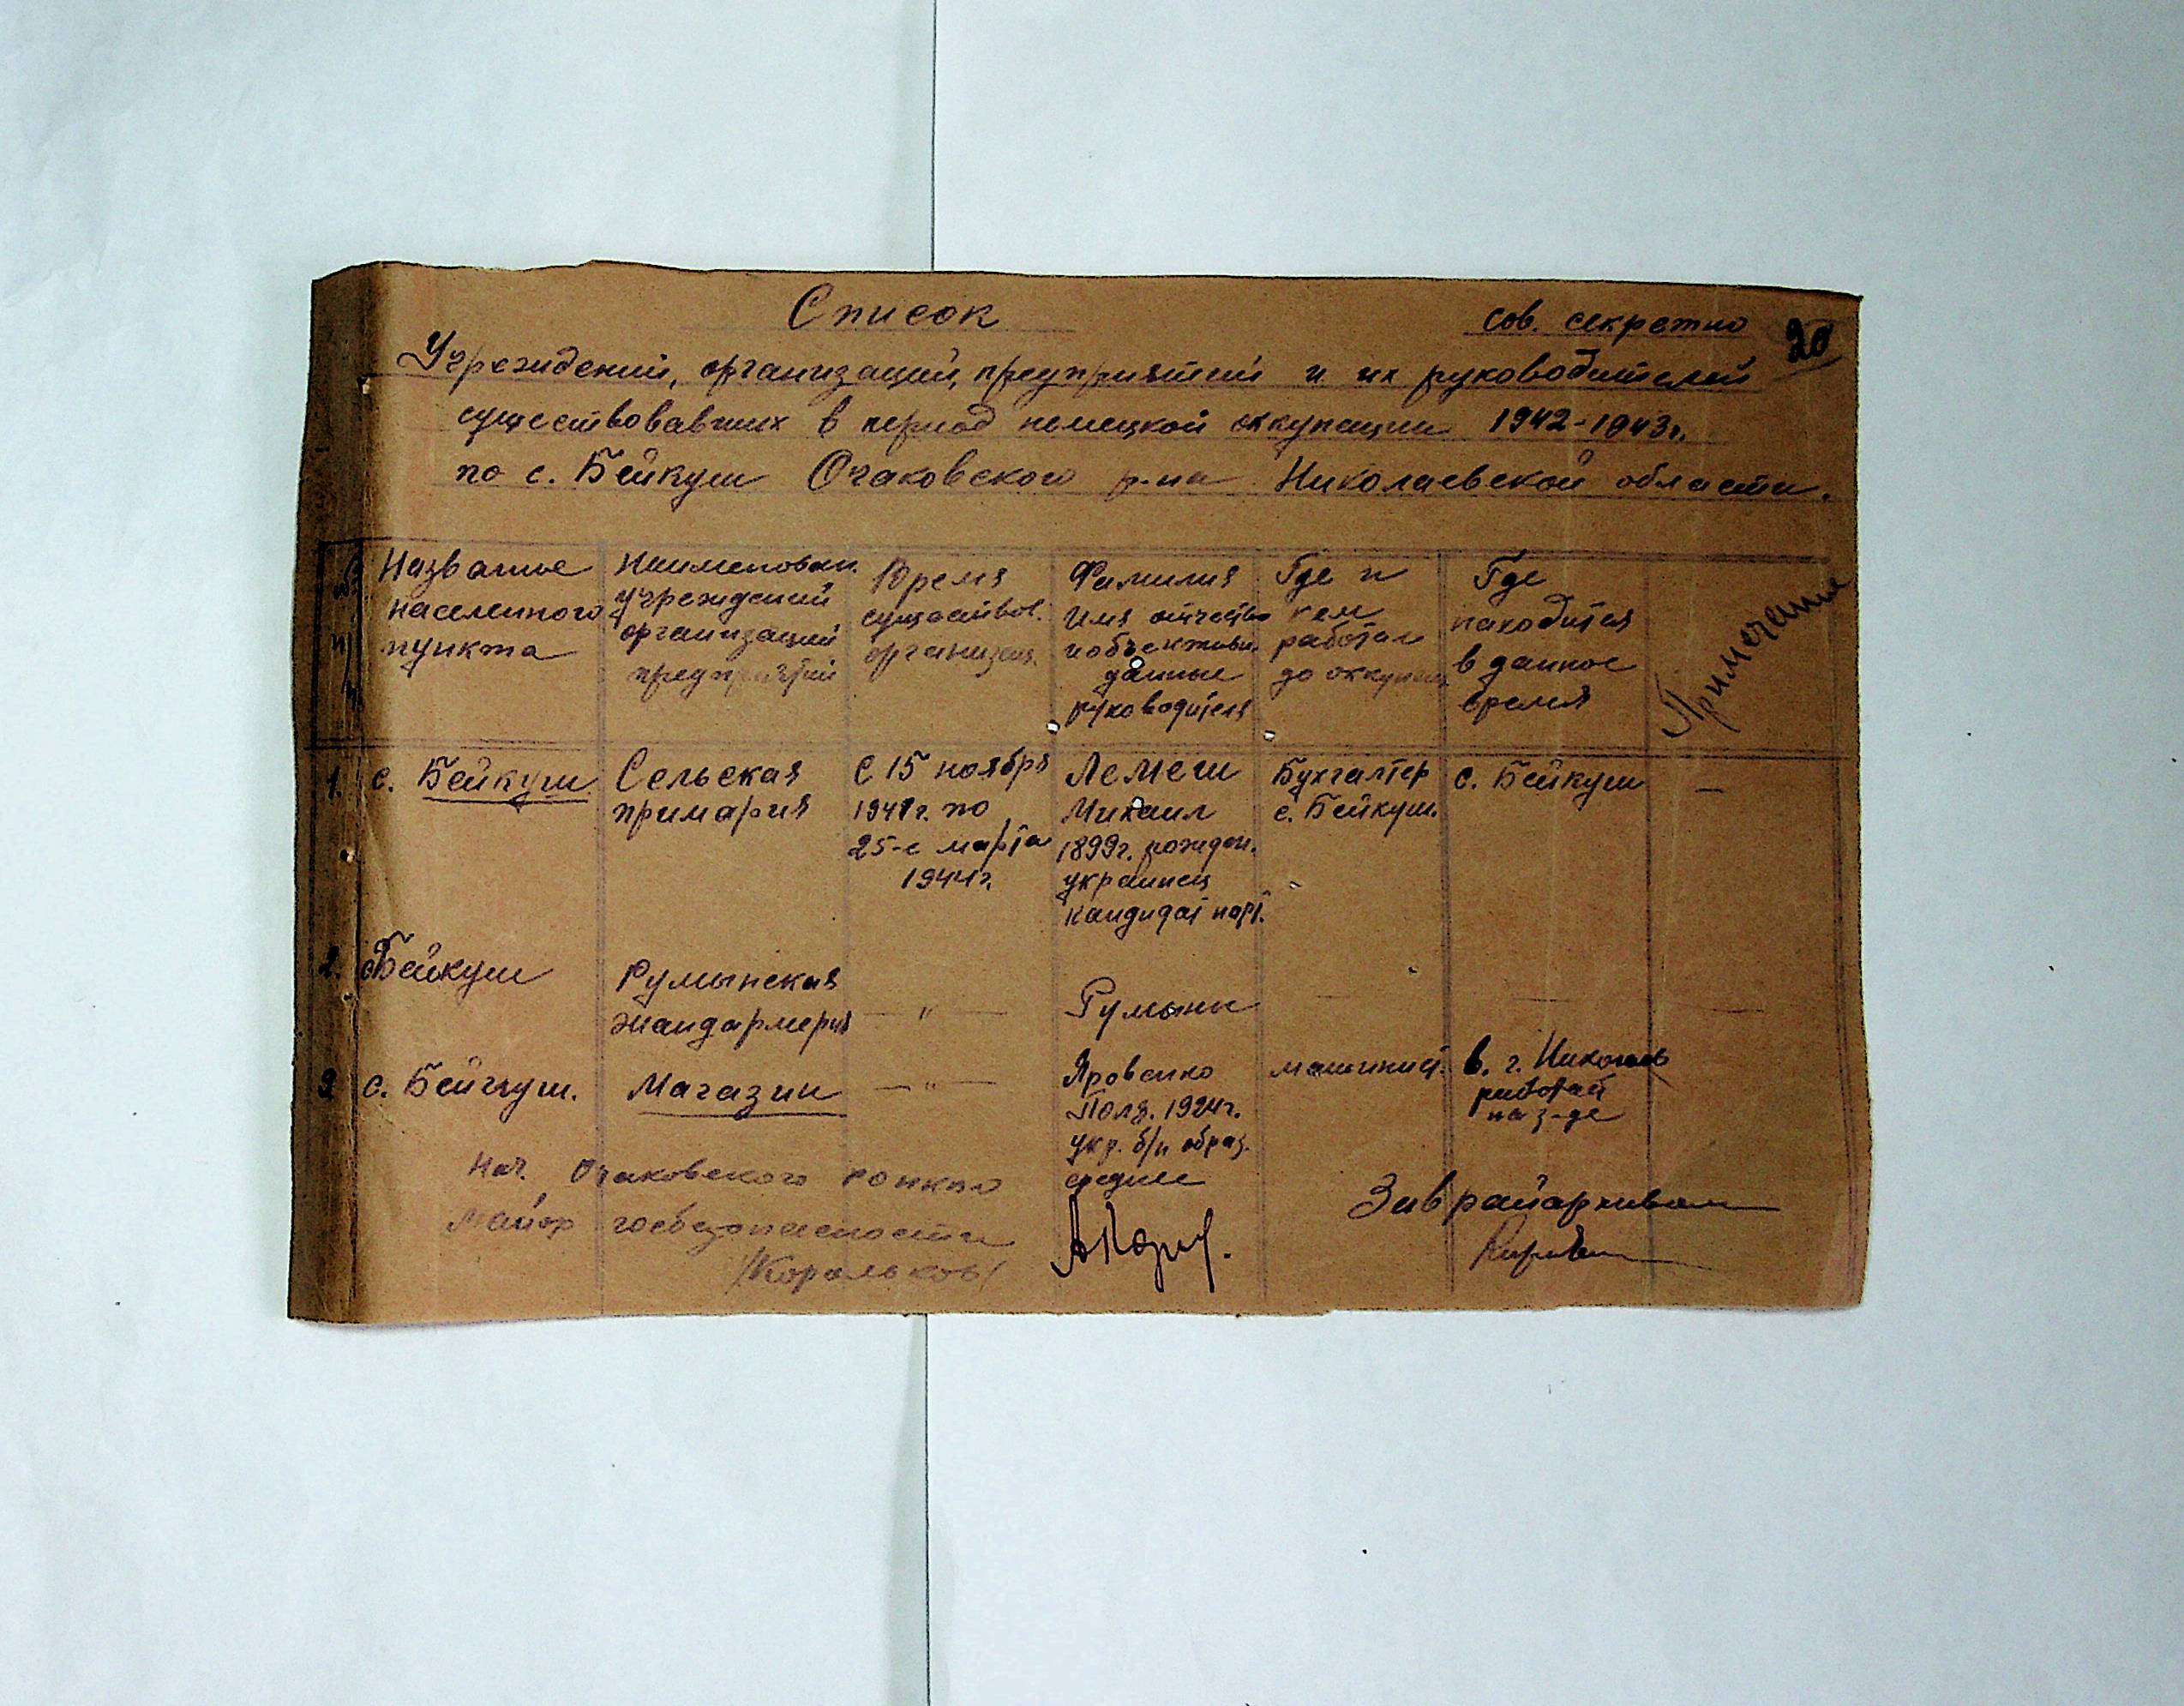 Список
сов. секретно 20
Учреждений, организаций, предприятий и их руководителей
существовавших в период немецкой оккупации 1942-1943г.
по с. Бейкуш Очаковского р-на Николаевской области.
№ п/п
Название
населенного
пункта
Наименован.
учреждений
организаций
предприятий
Время
существов.
организац.
Фамилия
Имя отчество
и объективн.
данные
руководителя
Где и
кем
работал
до оккупац.
Где
находится
в данное
время
Примечание
1. с. Бейкуш
Сельская
примария
С 15 ноября
1941г. по
25-е марта
1944г.
Лемеш
Михаил
1899г. рожден.
украинец
кандидат парт.
Бухгалтер
с. Бейкуш.
с. Бейкуш
—
2. с Бейкуш
Румынская
жандармерия
— " —
Румыны
—
—
—
3 с. Бейкуш.
Магазин
— " —
Яровенко
Полз. 1924г.
укр. б/п образ.
среднее
машинист.
в. г. Николаев
работает
на з-де
Нач. Очаковского
Майор госбезопасности
/Корольков/
Зав райархивом